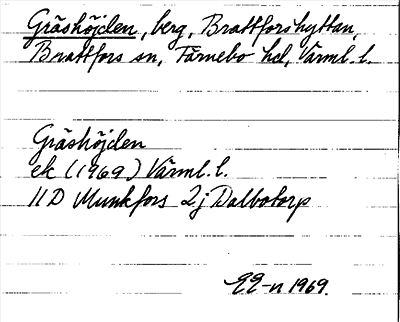 Gräshöjden, berg, Brattforshyttan,
Brattfors sn, Färnebo hd, Värml. l.
Gräshöjden
ek (1969) Värml. l.
11D Munkfors 2j Dalbotorp
EE-n 1969.